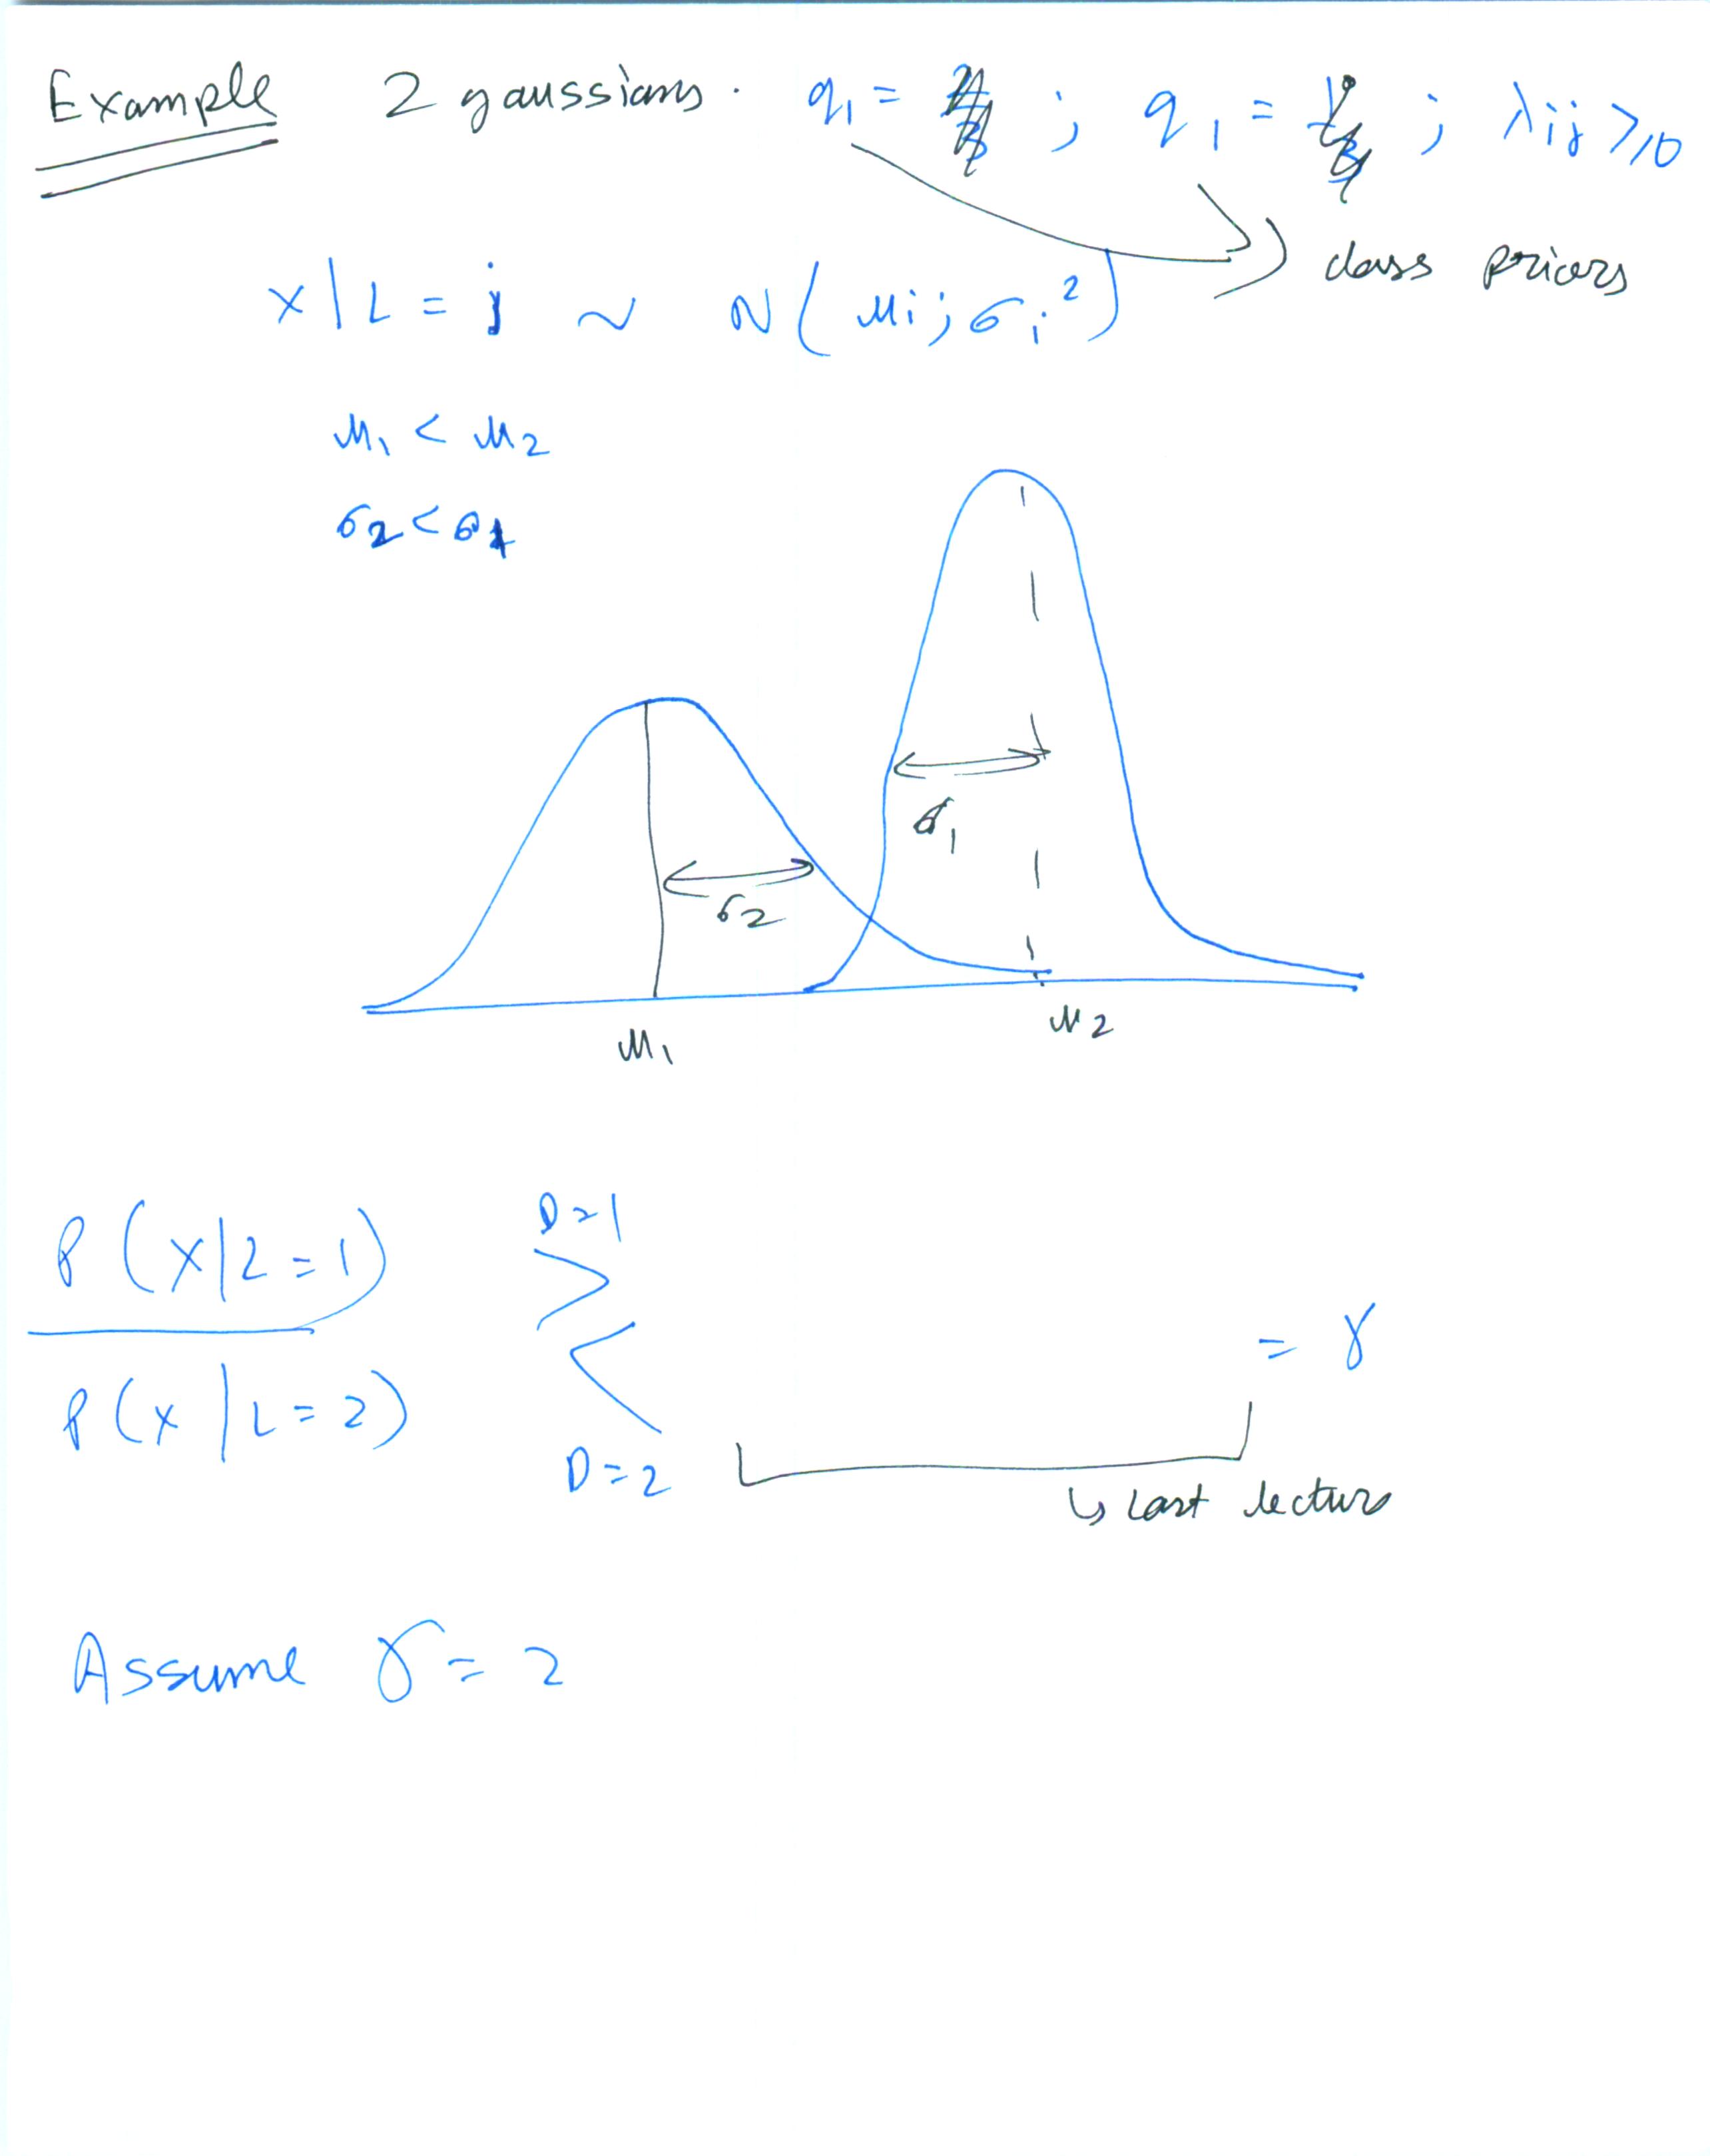 Example 2 gaussians. q₁ = ; q₁ = ; λij ≥ 0
class priors
x | L = j ~ N(μi; σi²)
μ₁ < μ₂
σ₂ < σ₁
σ₁
σ₂
μ₁ μ₂
D=1
P(x|L=1)
P(x|L=2)
= γ
D=2
↳ Last lecture
Assume γ = 2